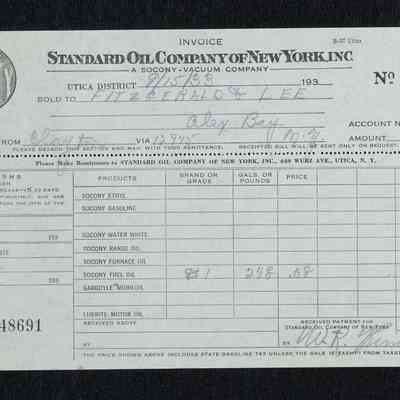 INVOICE
B-37
STANDARD OIL COMPANY OF NEW YORK, INC.
A SOCONY-VACUUM COMPANY
UTICA DISTRICT 8/15/33 193 Nº
SOLD TO FITZGERALD & LEE
Alex Bay ACCOUNT N
FROM Clayton VIA 12945 N.Y. AMOUNT
PLEASE DETACH THIS SECTION AND MAIL WITH YOUR REMITTANCE. RECEIPTED BILL WILL BE SENT ONLY ON REQUEST.
Please Make Remittances to STANDARD OIL COMPANY OF NEW YORK, INC., UTICA, N. Y.
PRODUCTS BRAND OR GRADE GALS. OR POUNDS PRICE
SOCONY ETHYL
SOCONY GASOLINE
SOCONY WATER WHITE
SOCONY RANGE OIL
SOCONY FURNACE OIL
SOCONY FUEL OIL #1 248 .08
GARGOYLE MOBILOIL
LUBRITE MOTOR OIL
48691
RECEIVED ABOVE
RECEIVED PAYMENT FOR
STANDARD OIL COMPANY OF NEW YORK
BY
BY
THE PRICE SHOWN ABOVE INCLUDES STATE GASOLINE TAX UNLESS THE SALE IS EXEMPT FROM TAXES